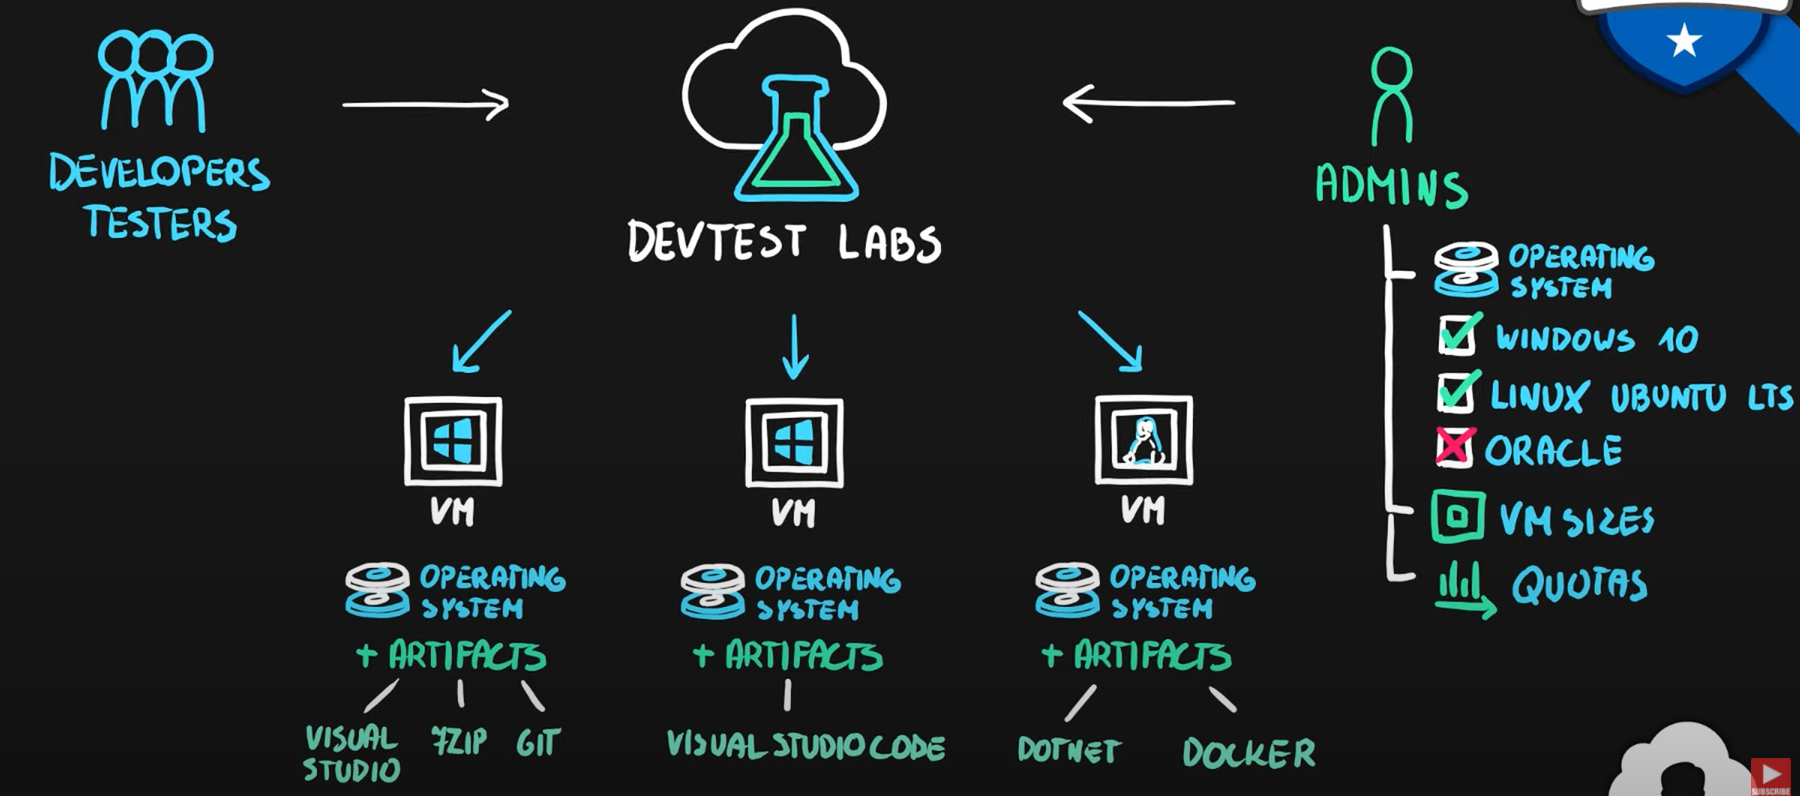 DEVELOPERS
TESTERS
DEVTEST LABS
ADMINS
OPERATING
SYSTEM
WINDOWS 10
LINUX UBUNTU LTS
ORACLE
VM SIZES
QUOTAS
VM
OPERATING
SYSTEM
+ ARTIFACTS
VISUAL
STUDIO
7ZIP
GIT
VM
OPERATING
SYSTEM
+ ARTIFACTS
VISUAL STUDIO CODE
VM
OPERATING
SYSTEM
+ ARTIFACTS
DOTNET
DOCKER
SUBSCRIBE